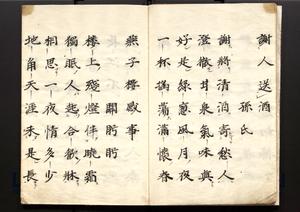 謝人送酒
孫氏
謝將清酒寄愁人
澄澈甘泉氣味真
好是緑窓風月夜
一杯蕩滿懷春
燕子樓事
關盼盼
樓上殘燈伴曉霜
獨眠人起合歡牀
相思一夜情多少
地角天涯未是長